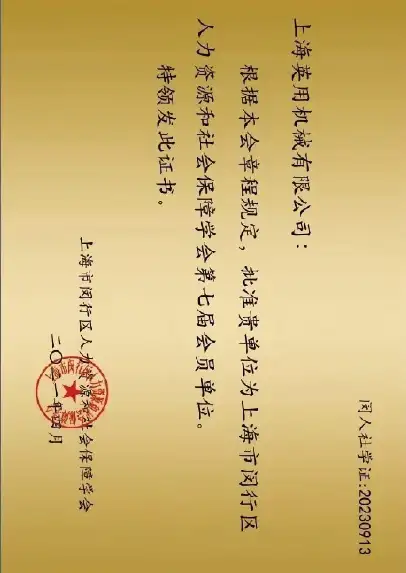 闵人社学证:20230913
上海英用机械有限公司:
根据本会章程规定，批准贵单位为上海市闵行区
人力资源和社会保障学会第七届会员单位。
特颁发此证书。
上海市闵行区人力资源和社会保障学会
二〇二一年 月